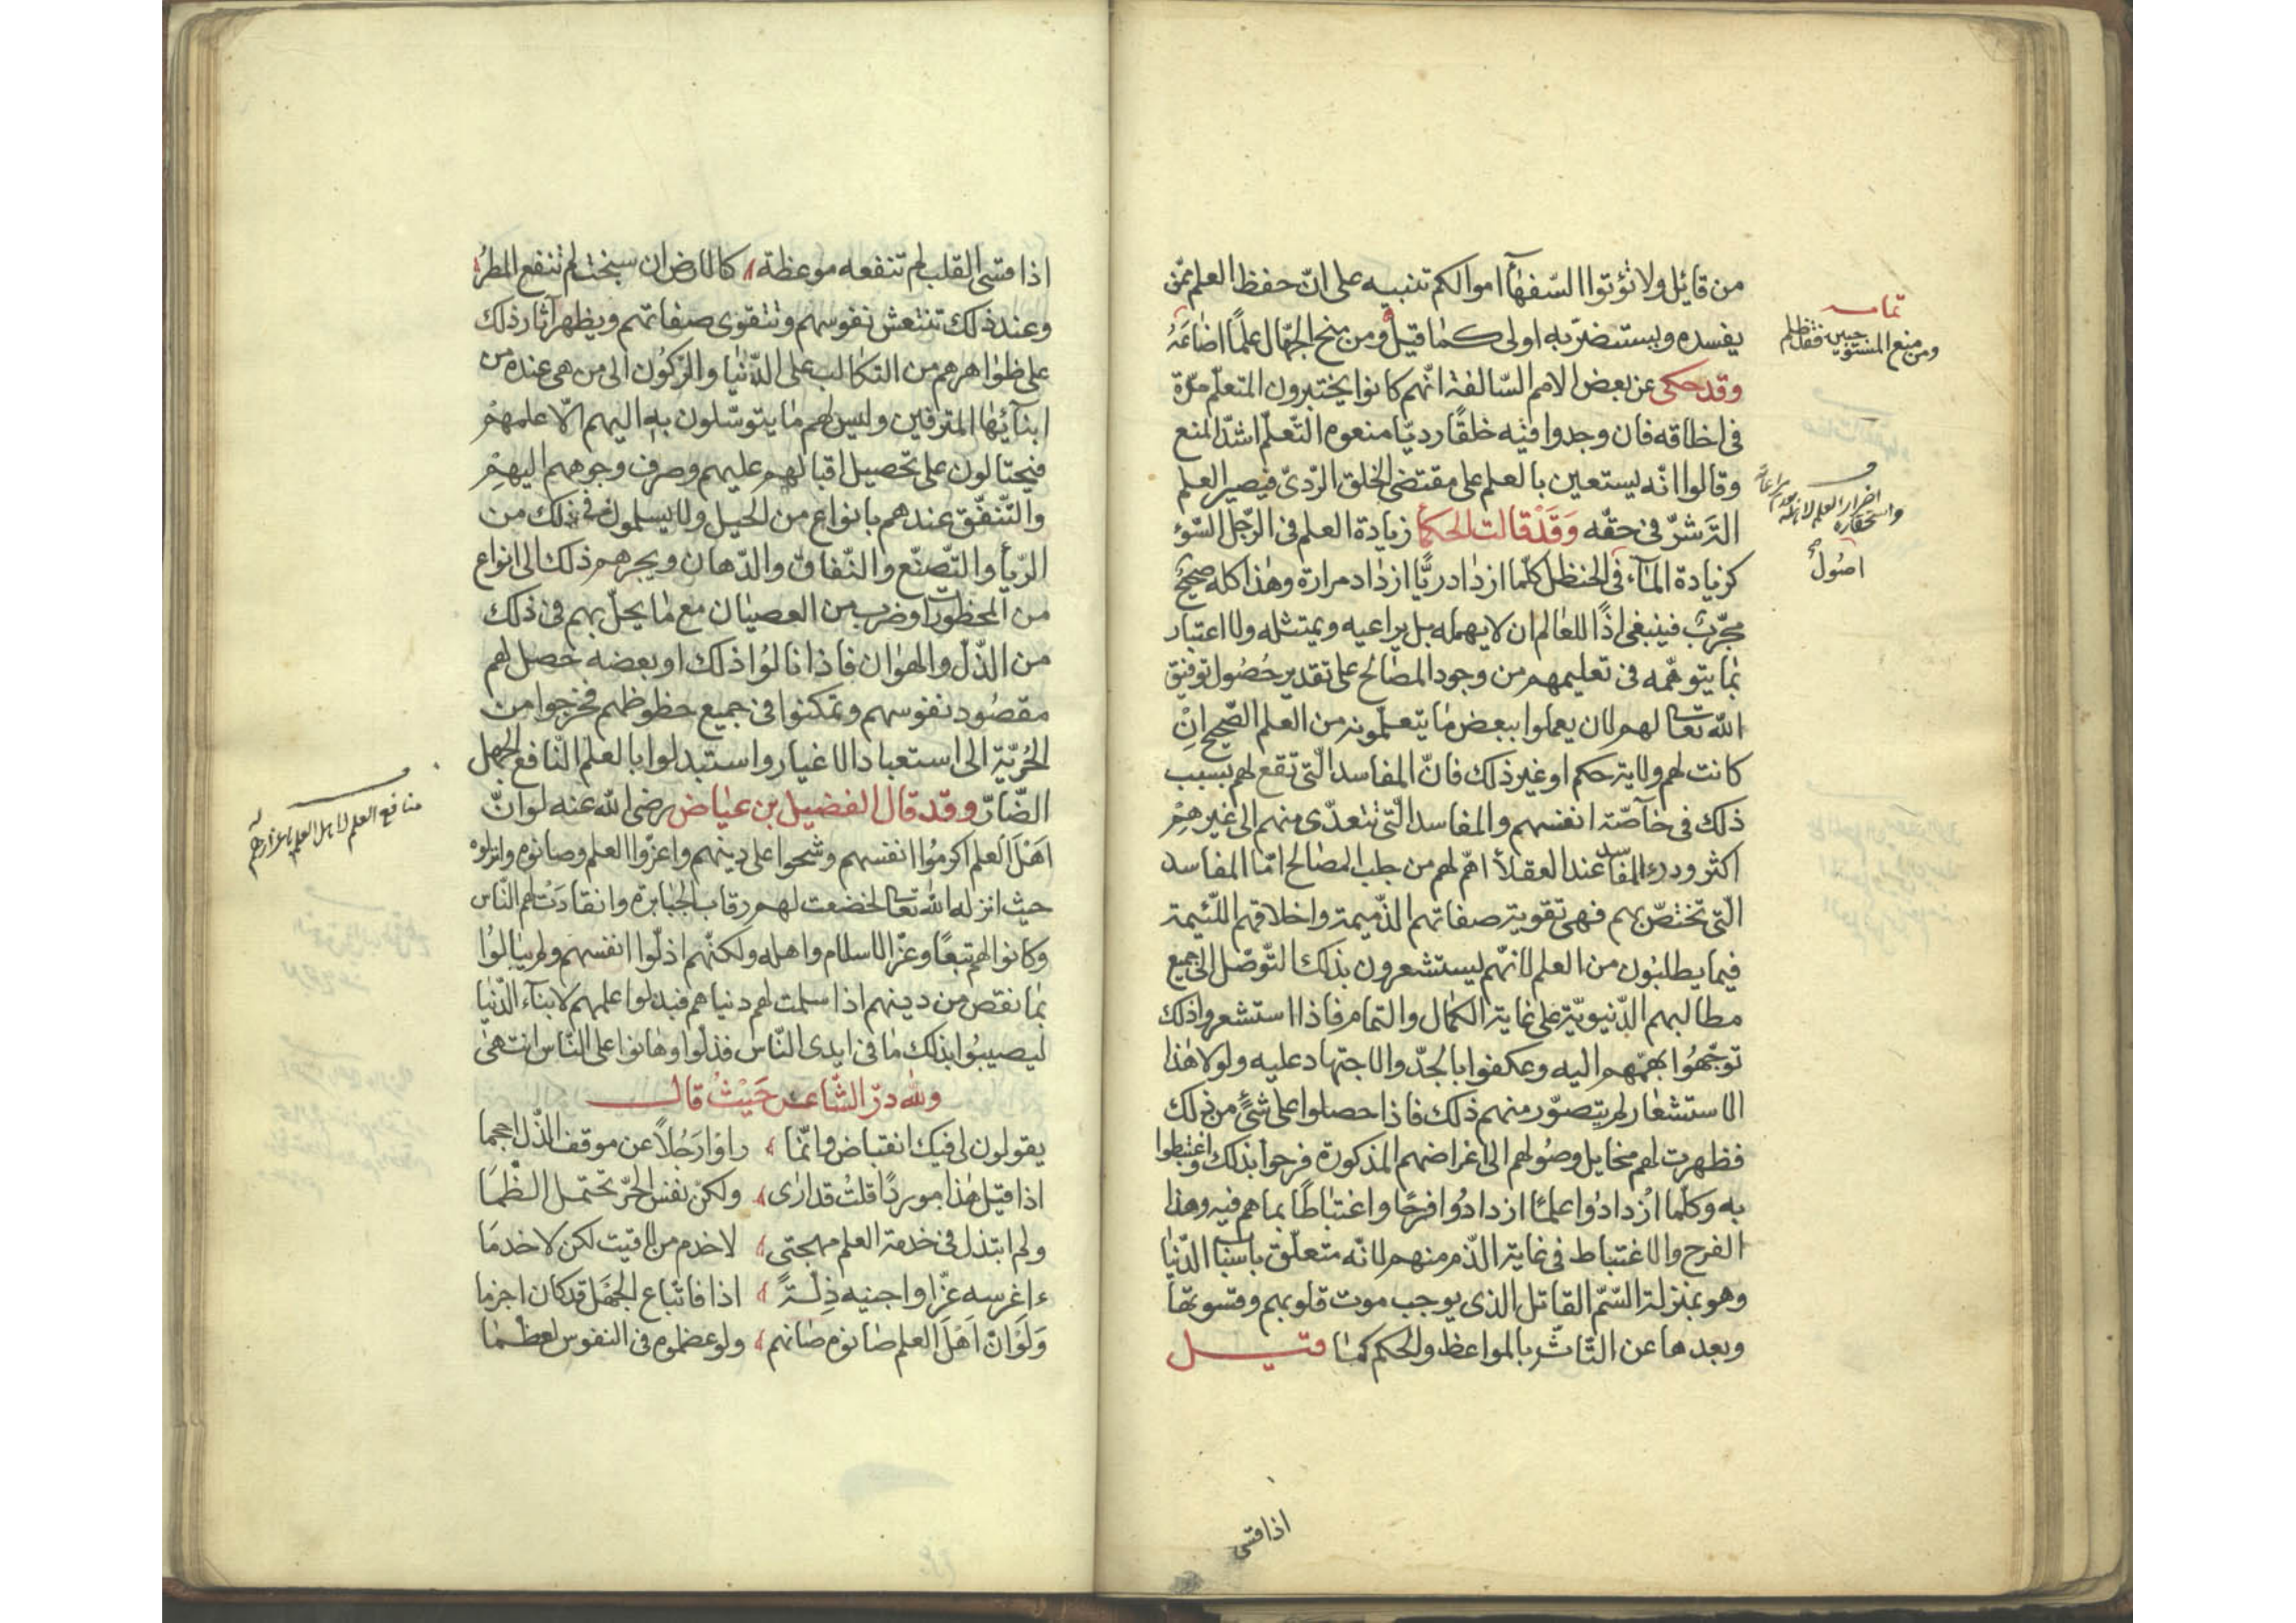 من قائل ولا تؤتوا السّفهآ اموالكم تنبيه على انّ حفظ العلم ممّن
يفسده ويستضرّ به اولى كما قيل ومن منح الجهّال علمًا اضاعَهُ
وقد حكى عن بعض الامم السّالفة انّهم كانوا يختبرون المتعلّم مدّة
فى اخلاقه فان وجدوا فيه خلقًا رديّا منعوه التّعلّم اشدّ المنع
وقالوا انّه يستعين بالعلم على مقتضى الخلق الرّدىّ فيصير العلم
الة شرّ فى حقّه وَقَدْ قالت الحكمآ زيادة العلم فى الرّجل السّوٓء
كزيادة المآء فى الحنظل كلّما ازداد ريًّا ازداد مرارة وهذا كله صحيح
مجرّب فينبغى اذًا للعالم ان لا يهمله بل يراعيه ويمتثله ولا اعتبار
بما يتوهّمه فى تعليمهم من وجود المصالح على تقدير حُصُول توفيق
الله تعا لهم لان يعملوا ببعض ما يتعلّمونه من العلم الصّحيح انْ
كانت لهم ولاية حكم او غير ذلك فانّ المفاسد الّتى تقع لهم بسبب
ذلك فى خآصّة انفسهم والمفاسد الّتى تتعدّى منهم الى غيرهِمْ
اكثر ودرء المفاسد عند العقلآ اهمّ لهم من جلب المصالح امّا المفاسد
الّتى تختصّ بهم فهى تقوية صفاتهم الذّميمة واخلاقهم اللّئيمة
فيما يطلبون من العلم لانّهم ليستشعرون بذلك التّوصّل الى جميع
مطالبهم الدّنيويّة على غاية الكمال والتمام فاذا استشعروا ذلك
توجّهُوا بهمّهم اليه وعكفوا بالجدّ والاجتهاد عليه ولولا هٰذا
الاستشعار لم يتصوّر منهم ذلك فاذا حصلوا على شئٍ من ذلك
فظهرت لهم مخايل وصُولهم الى اغراضهم المذكورة فرحوا بذلك واغتبطوا
به وكلّما ازدادُوا علمًا ازدادُوا فرحًا واغتباطًا بما هم فيه وهذا
الفرح والاغتباط فى غاية الذّم منهم لانّه متعلّق باسباب الدّنيا
وهو بمنزلة السّمّ القاتل الذى يوجب موت قلوبهم وقسوتها
وبعدها عن التّاثّر بالمواعظ والحكم كما قيل
تمامه
ومن منع المستوجبين فقد ظلم
اضرار العلم لاهله
واستحقاره
اصُول
اذا قسى
اذا قسى القلب لم تنفعه موعظة كالارض ان سبخت لم تنفع المطرُ
وعند ذلك تنتعش نفوسهم وتتقوى صفاتهم ويظهر آثار ذلك
على ظواهرهم من التكالب على الدّنيا والرّكُون الى من هى عنده من
ابنآئها المترفين وليس لهم ما يتوسّلون به اليهم الّا علمهمْ
فيحتالون على تحصيل اقبالهم عليهم وصرف وجوههم اليهِمْ
والتّنفّق عندهم بانواع من الحيل ولا يسلمون فى ذلك من
الرّيآ والتّصنّع والنّفاق والدّهان ويجرهم ذلك الى انواع
من المحظورات وضرب من العصيان مع ما يحلّ بهم فى ذلك
من الذّلّ والهوان فاذا نالوُا ذلك او بعضه حصل لهم
مقصُود نفوسهم وتمكنوا فى جميع حظوظهم فخرجوا من
الحُرّيّة الى استعباد الاغيار واستبدلوا بالعلم النّافع الجهل
الضّارّ وقد قال الفضيل بن عياض رضى الله عنه لو انّ
اَهْلَ العلم اكرمُوا انفسهم وشحوا على دينهم واعزّوا العلم وصانوه وانزلوه
حيث انزله الله تعا لخضعت لهم رقاب الجبابرة وانقادَتْ لهم النّاس
وكانوا لهم تبعًا وعزّ الاسلام واهله ولكنّهم اذلّوا انفسهم ولم يبالُوا
بما نقص من دينهم اذا سلمت لهم دنياهم فبذلوا علمهم لابنآء الدّنيا
ليصيبُوا بذلك ما فى ايدى النّاس فذلّوا وهانوا على النّاس انتهى
ولله درّ الشّاعر حَيْثُ قال
يقولون لى فيك انقباض وانّما راوْا رَجُلاً عن موقف الذّل احجما
اذا قيل هٰذا مورد قلتُ قد ارٰى ولكنّ نفس الحرّ تحتمل الظّمَا
ولم ابتذل فى خدمة العلم مهجتى لاخدم من لاقيت لكن لاخدمَا
ءاغرسه عزّا واجنيه ذِلّةً اذا فاتّباع الجَهْل قد كان احزما
وَلَوْ انّ اَهْلَ العلم صانوه صانهم ولو عضموه فى النفوس لعظّما
منافع العلم لاهل العلم باعزازهم